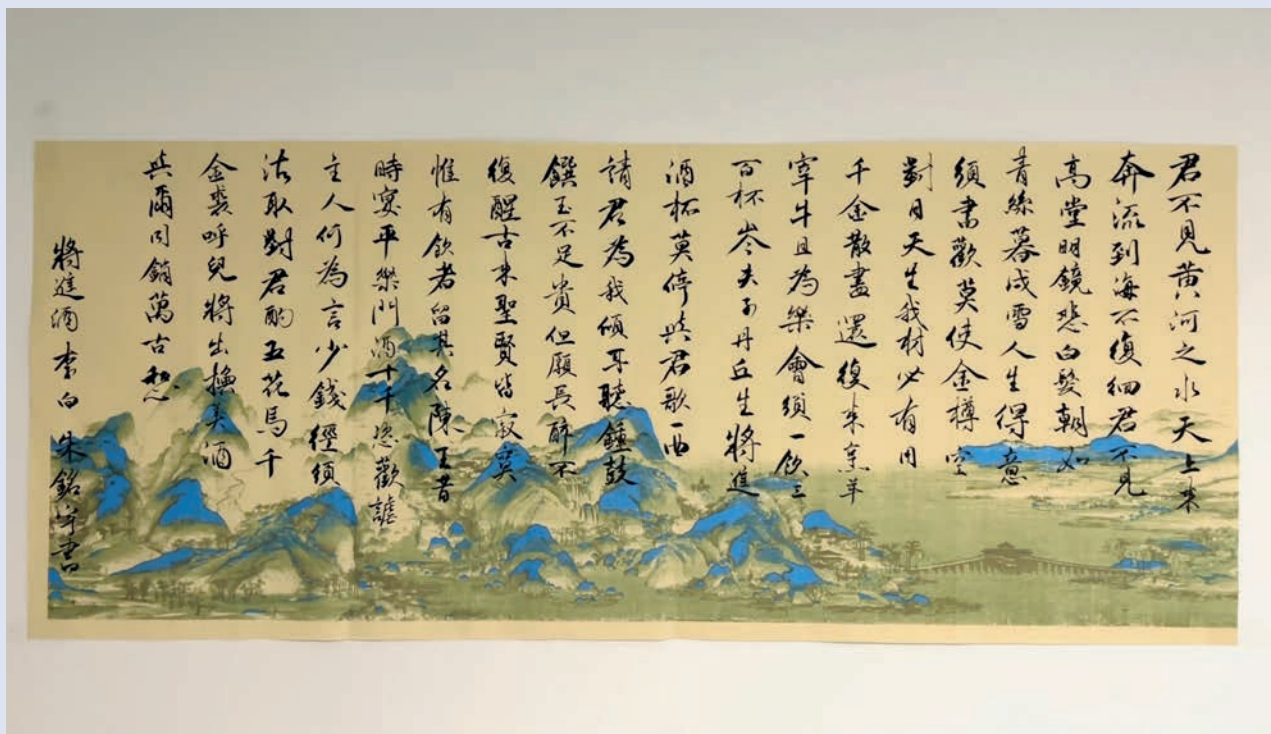 君不見黃河之水天上来
奔流到海不復徊君不見
高堂明鏡悲白髮朝如
青絲暮成雪人生得意
須盡歡莫使金樽空
對月天生我材必有用
千金散盡還復来烹羊
宰牛且為樂會須一飲三
百杯岑夫子丹丘生將進
酒杯莫停與君歌一曲
請君為我傾耳聽鍾鼓
饌玉不足貴但願長醉不
復醒古来聖賢皆寂寞
惟有飲者留其名陳王昔
時宴平樂鬥酒十千恣歡謔
主人何為言少錢徑須
沽取對君酌五花馬千
金裘呼兒將出換美酒
與爾同銷萬古愁
將進酒 李白 朱銘宇書